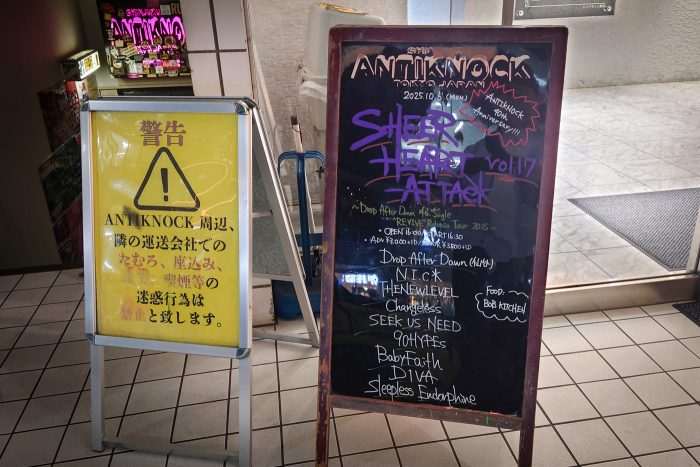 ANTIKNOCK
警告
ANTIKNOCK 周辺、
隣の運送会社での
たむろ、座込み、
喫煙等の
迷惑行為は
禁止と致します。
ANTIKNOCK
TOKYO JAPAN
(MON)
ANTIKNOCK
40th
Anniversary!!!
SHEER
HEART
ATTACK
vol.17
~Drop After Dawn 4th Single
"REVIVE" Release Tour 2025
• OPEN 16:00 START 16:30
• ADV ¥3,000+1D
Drop After Dawn
N.I.C*
THENEWLEVEL
Changeless
SEEK US NEED
90HYPEs
BabyFaith
DIVA
Sleepless Endorphine
FOOD:
BOB KITCHEN